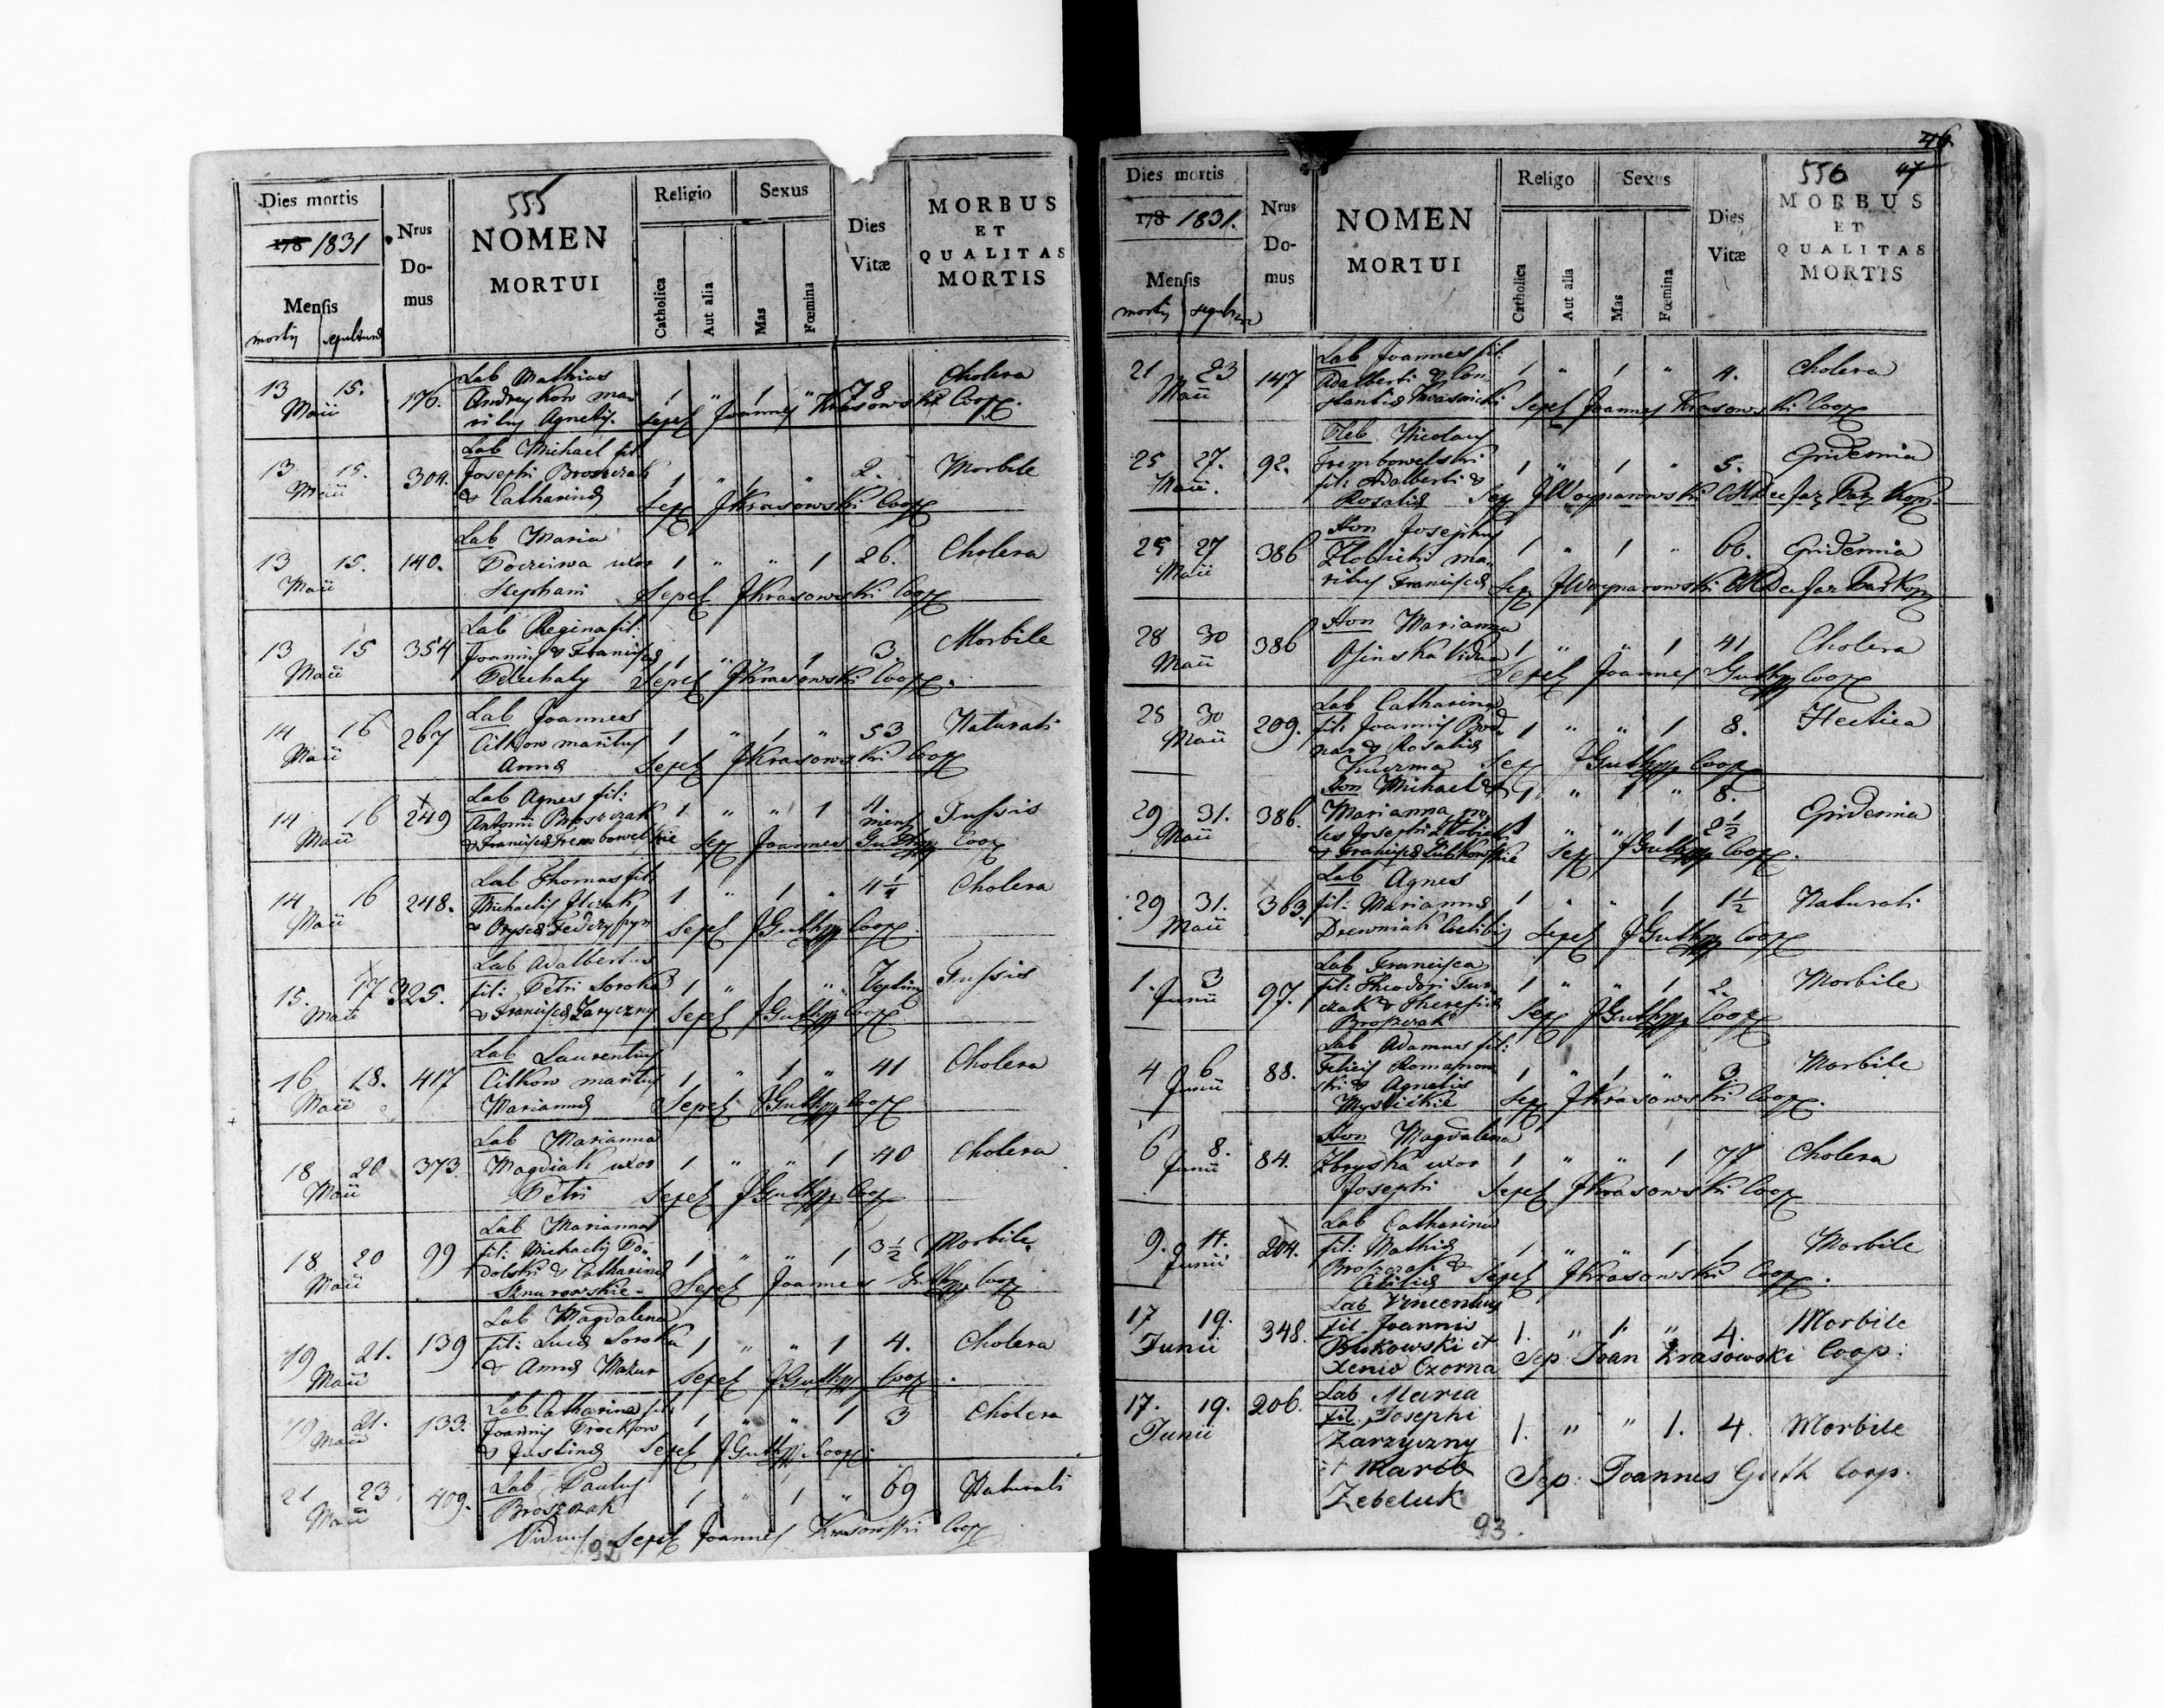 555
Dies mortis
178 1831
Mensis
mortis sepulturae
Nrus Domus
NOMEN
MORTUI
Religio
Catholica
Aut alia
Sexus
Mas
Fœmina
Dies
Vitæ
MORBUS
ET
QUALITAS
MORTIS
13 15. Maii 176. Lab Mathias
Andreykow ma-
ritus Agnetis. 1 " 1 " 78 Cholera
Sepel Joannes Krasowski Coop.
13 15. Maii 304. Lab Michael fil
Josephi Broszczak
& Catharina 1 " 1 " 2. Morbile
Sep JKrasowski Coop
13 15. Maii 140. Lab Maria
uxor
Stephani 1 " " 1 26. Cholera
Sepel JKrasowski Coop
13 15 Maii 354 Lab Regina fil
Joannis & Francisca
Pelechaty 1 " " 1 3. Morbile
Sepel JKrasowski Coop.
14 16 Maii 267 Lab Joannes
Citkow maritus
Anna 1 " 1 " 53 Naturali
Sepel JKrasowski Coop
14 16 Maii 249 Lab Agnes fil:
Antonii Broszczak
& Francisca Trembowelskie 1 " " 1 4. mens Tussis
Sep Joannes Guth Coop
14 16 Maii 248. Lab Thomas fil:
Michaelis
& 1 " 1 " 4 1/4 Cholera
Sepel JGuth Coop
15. 17 Maii 325. Lab Adalbertus
fil: Petri Soroka
& Francisca Zaryczny 1 " 1 " Tussis
Sepel JGuth Coop
16 18. Maii 417 Lab Laurentius
Citkow maritus
Marianna 1 " 1 " 41 Cholera
Sepel JGuth Coop
18 20 Maii 373. Lab Marianna
Magdiak uxor
Petri 1 " " 1 40 Cholera
Sepel JGuth Coop
18 20 Maii 99 Lab Marianna
fil: Michaelis Po-
dolski & Catharina
Sknurowskie 1 " " 1 3 1/2 Morbile
Sepel Joannes Guth Coop
19 21. Maii 139 Lab Magdalena
fil: Luca Soroka
& Anna Mazur 1 " " 1 4. Cholera
Sepel JGuth Coop.
19 21. Maii 133. Lab Catharina fil:
Joannis
& Justina 1 " " 1 3 Cholera
Sepel JGuth Coop.
21 23. Maii 409. Lab Paulus
Broszczak
Viduus 1 " 1 " 69 Naturali
Sepel Joannes Krasowski Coop
92
46.
47
556
Dies mortis
178 1831.
Mensis
mortis sepulturae
Nrus Domus
NOMEN
MORTUI
Religo
Catholica
Aut alia
Sexus
Mas
Fœmina
Dies
Vitæ
MORBUS
ET
QUALITAS
MORTIS
21 23 Maii 147 Lab Joannes fil:
Adalberti & Con-
stantia Kwasnicki 1 " 1 " 4. Cholera
Sepel Joannes Krasowski Coop
25 27. Maii. 92. Nicolaus
Trembowelski
fil: Adalberti &
Rosalia 1 " 1 " 5. Epidemia
Sep JWoynarowski
25 27 Maii 386 Hon Josephus
Zlobicki ma-
ritus Francisca 1 " 1 " 60. Epidemia
Sep JWoynarowski
28 30 Maii 386 Hon Marianna
Osinska Vidua 1 " " 1 41 Cholera
Sepel Joannes Guth Coop
28 30 Maii 209. Lab Catharina
fil: Joannis Bod-
nar & Rosalia
Kuczma 1 " " 1 8. Hectica
Sep JGuth Coop
29 31. Maii 386. Hon Michael &
Marianna pro-
les Josephi Zlobicki
& Francisca 1 " 1 " 8.
1 " " 1 2 1/2 Epidemia
Sep JGuth Coop.
29 31. Maii 363. Lab Agnes
fil: Marianna
Drewniak Coelibis 1 " " 1 1 1/2 Naturali
Sepel JGuth Coop
1. 3 Junii 97. Lab Francisca
fil: Theodori Tur-
czak & Theresia
Broszczak 1 " " 1 2. Morbile
Sep JGuth Coop
4 6 Junii 88. Lab Adamus fil:
Felicis Romanow-
ski & Agnetis
Myslickie 1 " 1 " 3 Morbile
Sep JKrasowski Coop.
6 8. Junii 84. Hon Magdalena
Zbryska uxor
Josephi 1 " " 1 77 Cholera
Sepel JKrasowski Coop
9. 11. Junii 204. Lab Catharina
fil: Mathia
Broszczak &
1 " " 1 1 Morbile
Sepel JKrasowski Coop.
17 19. Junii 348. Lab Vincentius
fil. Joannis
Bukowski et
Xenia Czorna 1. " 1. " 4. Morbile
Sep Joan Krasowski Coop.
17. 19. Junii 206. Lab Maria
fil. Josephi
Zarzyczny
et Maria
Zebeluk 1. " " 1. 4. Morbile
Sep: Joannes Guth Coop.
93.